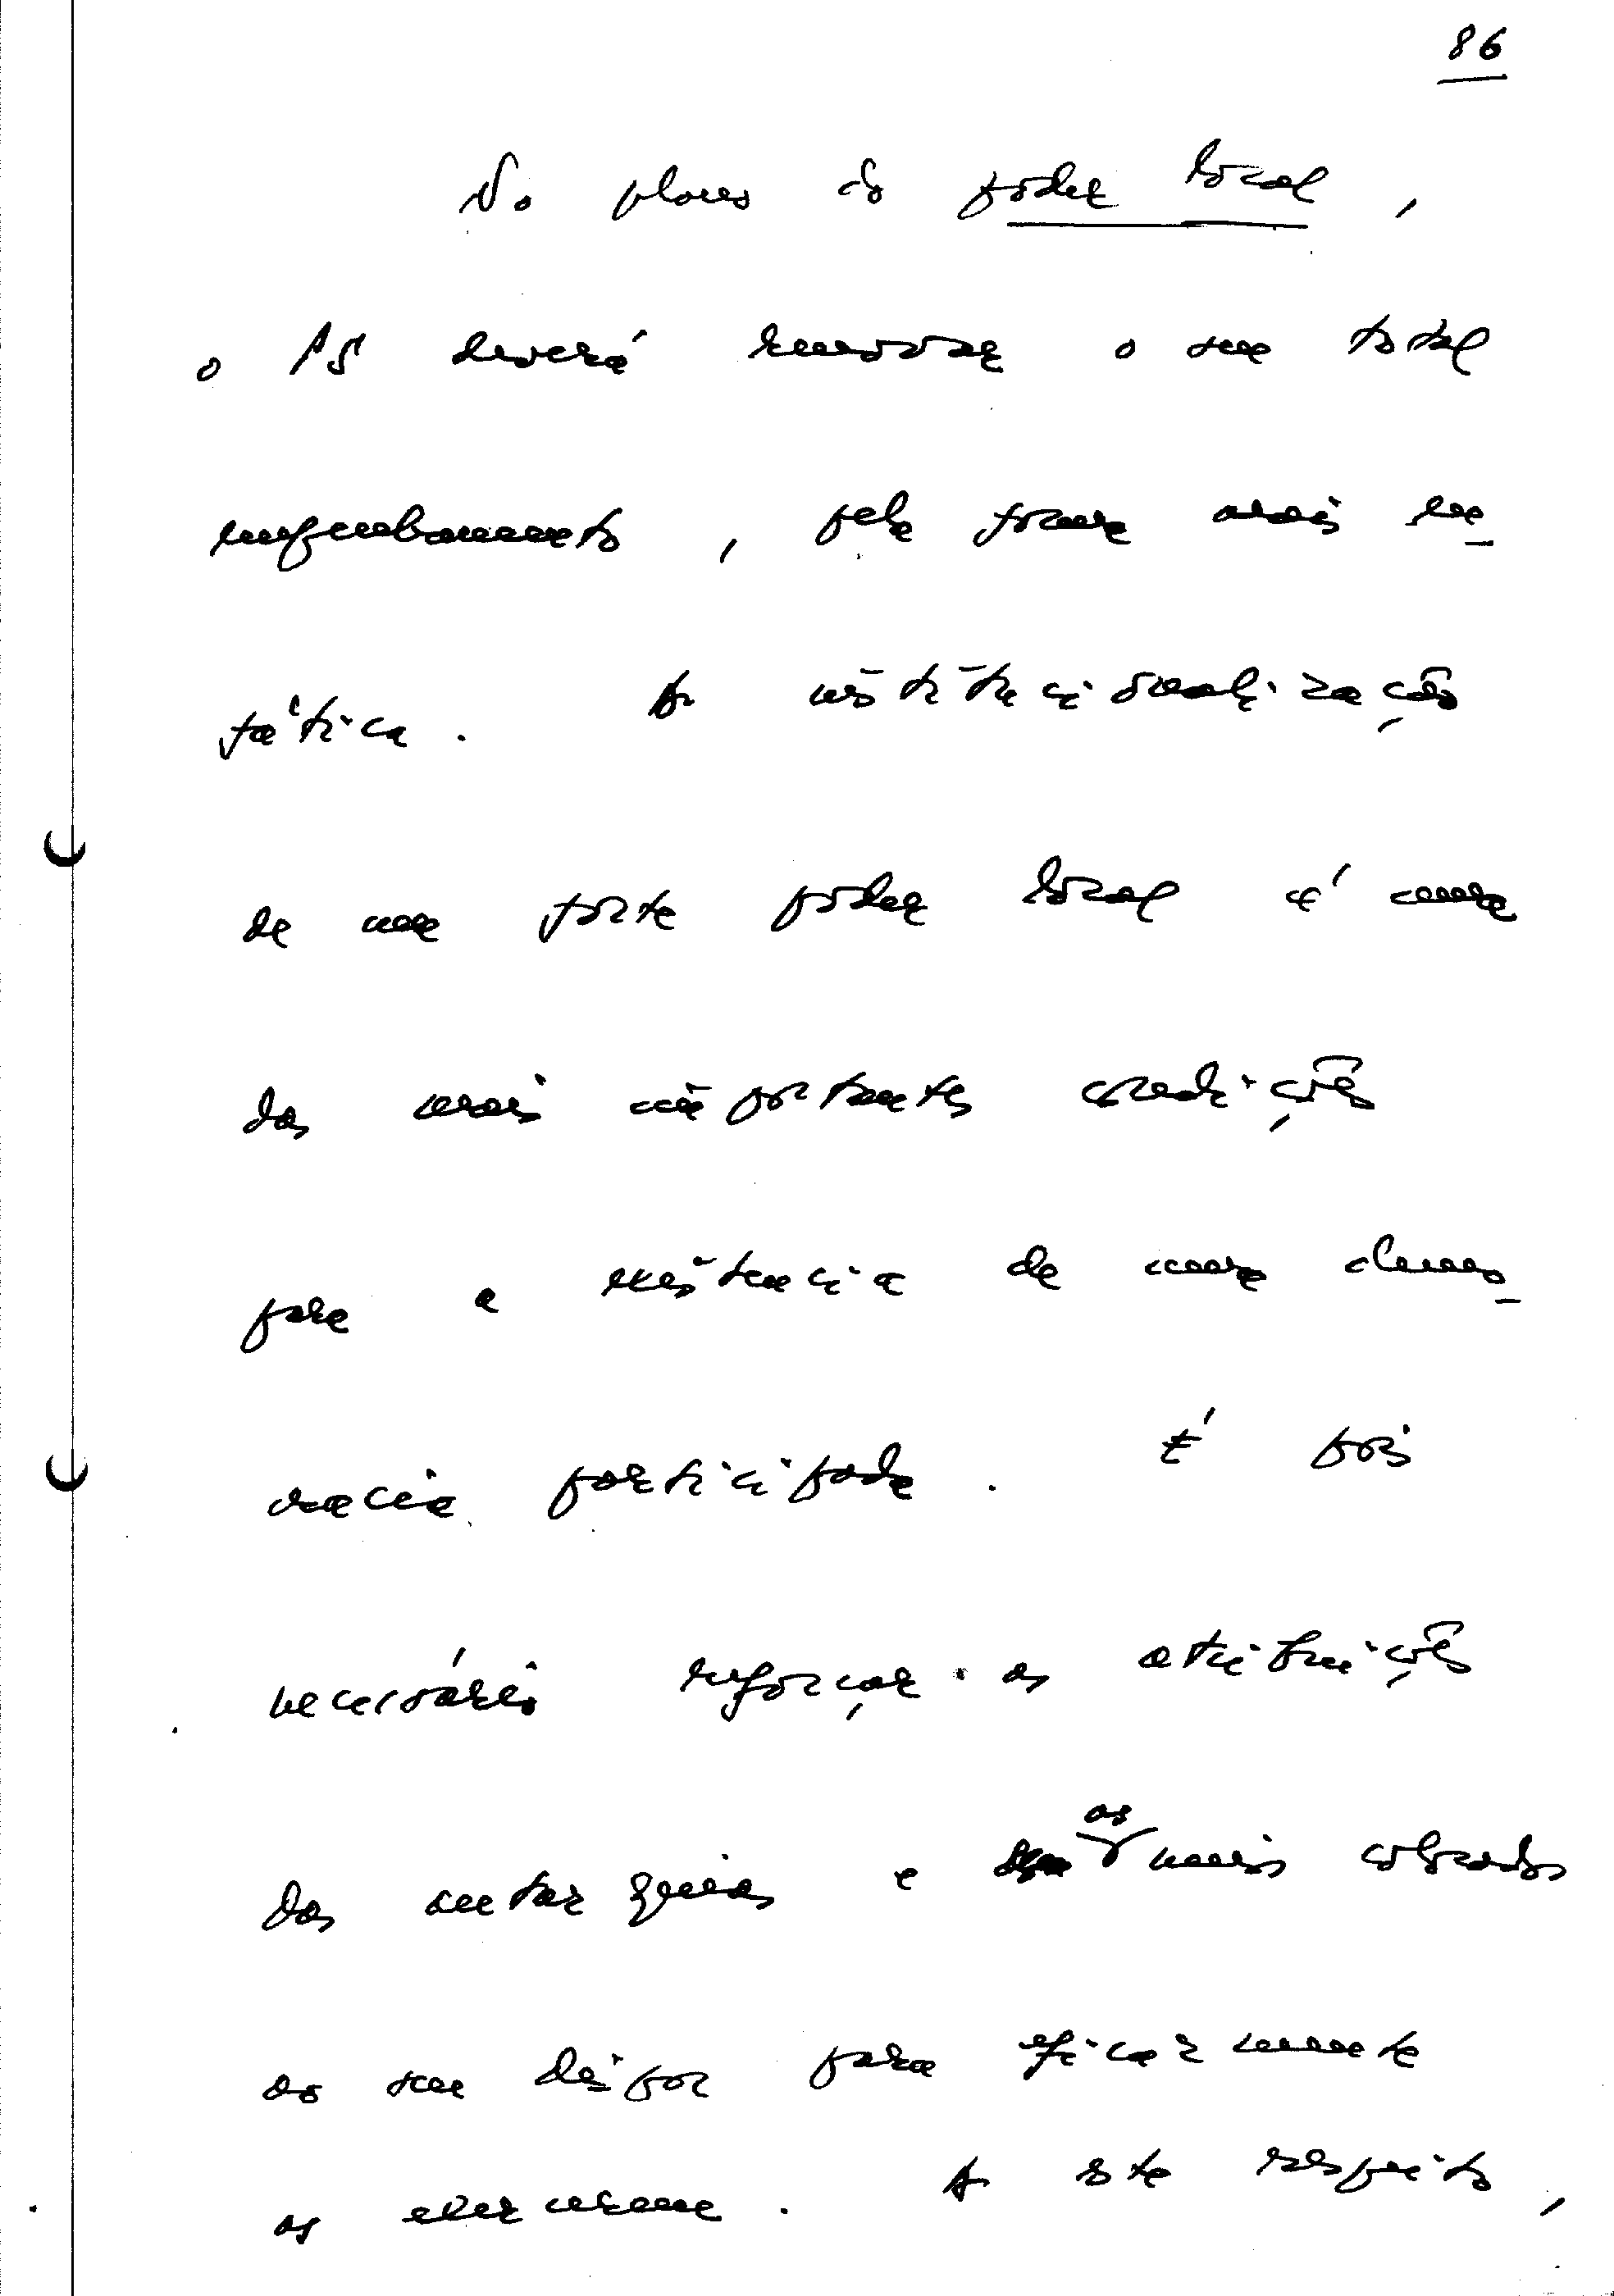 86
No plano do poder local,
o PS deverá renovar o seu total
empenhamento, pela forma mais en-
fática. A institucionalização
de um forte poder local é uma
das mais importantes condições
para a existência de uma demo-
cracia participada. É pois
necessário reforçar as atribuições
das autarquias e os meios colocados
ao seu dispor para eficazmente
as exercerem. A este respeito,